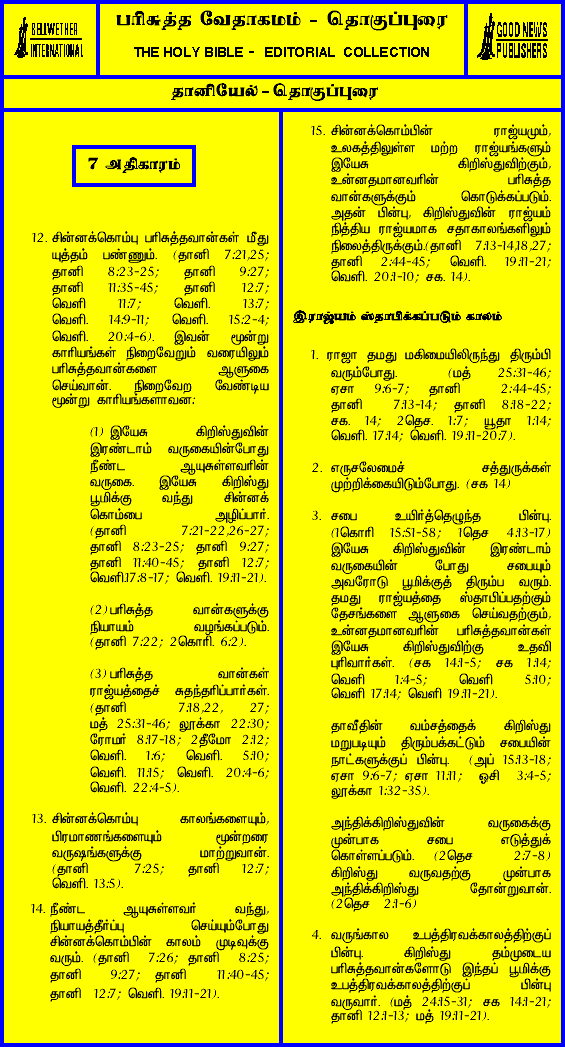 BELLWETHER
INTERNATIONAL
பரிசுத்த வேதாகமம் - தொகுப்புரை
THE HOLY BIBLE - EDITORIAL COLLECTION
GOOD NEWS
PUBLISHERS
தானியேல் - தொகுப்புரை
7 அதிகாரம்
12. சின்னக்கொம்பு பரிசுத்தவான்கள் மீது
யுத்தம் பண்ணும். (தானி 7:21,25;
தானி 8:23-25; தானி 9:27;
தானி 11:35-45; தானி 12:7;
வெளி 11:7; வெளி. 13:7;
வெளி. 14:9-11; வெளி. 15:2-4;
வெளி. 20:4-6). இவன் மூன்று
காரியங்கள் நிறைவேறும் வரையிலும்
பரிசுத்தவான்களை ஆளுகை
செய்வான். நிறைவேற வேண்டிய
மூன்று காரியங்களாவன:
(1) இயேசு கிறிஸ்துவின்
இரண்டாம் வருகையின்போது
நீண்ட ஆயுசுள்ளவரின்
வருகை. இயேசு கிறிஸ்து
பூமிக்கு வந்து சின்னக்
கொம்பை அழிப்பார்.
(தானி 7:21-22,26-27;
தானி 8:23-25; தானி 9:27;
தானி 11:40-45; தானி 12:7;
வெளி.17:8-17; வெளி. 19:11-21).
(2) பரிசுத்த வான்களுக்கு
நியாயம் வழங்கப்படும்.
(தானி 7:22; 2கொரி. 6:2).
(3) பரிசுத்த வான்கள்
ராஜ்யத்தைச் சுதந்தரிப்பார்கள்.
(தானி 7:18,22, 27;
மத் 25:31-46; லூக்கா 22:30;
ரோமர் 8:17-18; 2தீமோ 2:12;
வெளி. 1:6; வெளி. 5:10;
வெளி. 11:15; வெளி. 20:4-6;
வெளி. 22:4-5).
13. சின்னக்கொம்பு காலங்களையும்,
பிரமாணங்களையும் மூன்றரை
வருஷங்களுக்கு மாற்றுவான்.
(தானி 7:25; தானி 12:7;
வெளி. 13:5).
14. நீண்ட ஆயுசுள்ளவர் வந்து,
நியாயத்தீர்ப்பு செய்யும்போது
சின்னக்கொம்பின் காலம் முடிவுக்கு
வரும். (தானி 7:26; தானி 8:25;
தானி 9:27; தானி 11:40-45;
தானி 12:7; வெளி. 19:11-21).
15. சின்னக்கொம்பின் ராஜ்யமும்,
உலகத்திலுள்ள மற்ற ராஜ்யங்களும்
இயேசு கிறிஸ்துவிற்கும்,
உன்னதமானவரின் பரிசுத்த
வான்களுக்கும் கொடுக்கப்படும்.
அதன் பின்பு, கிறிஸ்துவின் ராஜ்யம்
நித்திய ராஜ்யமாக சதாகாலங்களிலும்
நிலைத்திருக்கும்.(தானி 7:13-14,18,27;
தானி 2:44-45; வெளி. 19:11-21;
வெளி. 20:1-10; சக. 14).
இராஜ்யம் ஸ்தாபிக்கப்படும் காலம்
1. ராஜா தமது மகிமையிலிருந்து திரும்பி
வரும்போது. (மத் 25:31-46;
ஏசா 9:6-7; தானி 2:44-45;
தானி 7:13-14; தானி 8:18-22;
சக. 14; 2தெச. 1:7; யூதா 1:14;
வெளி. 17:14; வெளி. 19:11-20:7).
2. எருசலேமைச் சத்துருக்கள்
முற்றிக்கையிடும்போது. (சக 14)
3. சபை உயிர்த்தெழுந்த பின்பு.
(1கொரி 15:51-58; 1தெச 4:13-17)
இயேசு கிறிஸ்துவின் இரண்டாம்
வருகையின் போது சபையும்
அவரோடு பூமிக்குத் திரும்ப வரும்.
தமது ராஜ்யத்தை ஸ்தாபிப்பதற்கும்
தேசங்களை ஆளுகை செய்வதற்கும்,
உன்னதமானவரின் பரிசுத்தவான்கள்
இயேசு கிறிஸ்துவிற்கு உதவி
புரிவார்கள். (சக 14:1-5; சக 1:14;
வெளி 1:4-5; வெளி 5:10;
வெளி 17:14; வெளி 19:11-21).
தாவீதின் வம்சத்தைக் கிறிஸ்து
மறுபடியும் திரும்பக்கட்டும் சபையின்
நாட்களுக்குப் பின்பு. (அப் 15:13-18;
ஏசா 9:6-7; ஏசா 11:11; ஓசி 3:4-5;
லூக்கா 1:32-35).
அந்திக்கிறிஸ்துவின் வருகைக்கு
முன்பாக சபை எடுத்துக்
கொள்ளப்படும். (2தெச 2:7-8)
கிறிஸ்து வருவதற்கு முன்பாக
அந்திக்கிறிஸ்து தோன்றுவான்.
(2தெச 2:1-6)
4. வருங்கால உபத்திரவக்காலத்திற்குப்
பின்பு. கிறிஸ்து தம்முடைய
பரிசுத்தவான்களோடு இந்தப் பூமிக்கு
உபத்திரவக்காலத்திற்குப் பின்பு
வருவார். (மத் 24:15-31; சக 14:1-21;
தானி 12:1-13; மத் 19:11-21).